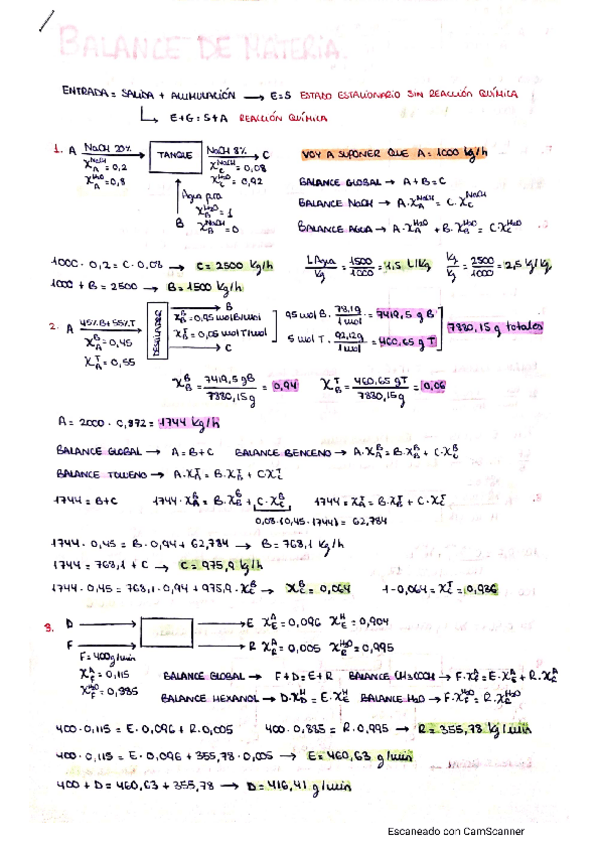 BALANCE DE MATERIA
ENTRADA = SALIDA + ACUMULACIÓN → E=S ESTADO ESTACIONARIO SIN REACCIÓN QUÍMICA
↳ E+G = S+A REACCIÓN QUÍMICA
1. A NaOH 20% TANQUE NaOH 8% C VOY A SUPONER QUE A = 1000 kg/h
X_A^NaOH = 0,2 X_C^NaOH = 0,08
X_A^H2O = 0,8 X_C^H2O = 0,92 BALANCE GLOBAL → A+B=C
Agua pura
X_B^H2O = 1 BALANCE NaOH → A·X_A^NaOH = C·X_C^NaOH
B X_B^NaOH = 0 BALANCE AGUA → A·X_A^H2O + B·X_B^H2O = C·X_C^H2O
1000 · 0,2 = C · 0,08 → C = 2500 kg/h L Agua/kg = 1500/1000 = 1,5 L/kg kg/kg = 2500/1000 = 2,5 kg/kg
1000 + B = 2500 → B = 1500 kg/h
2. A 45% B + 55% T DESTILADOR B
X_A^B = 0,45 X_B^B = 0,95 mol B/mol 95 mol B · 78,1g/1mol = 7419,5 g B
X_A^T = 0,55 X_B^T = 0,05 mol T/mol 5 mol T · 92,12g/1mol = 460,65 g T 7880,15 g totales
C
X_B^B = 7419,5 gB/7880,15 g = 0,94 X_B^T = 460,65 gT/7880,15 g = 0,06
A = 2000 · 0,872 = 1744 kg/h
BALANCE GLOBAL → A = B+C BALANCE BENCENO → A·X_A^B = B·X_B^B + C·X_C^B
BALANCE TOLUENO → A·X_A^T = B·X_B^T + C·X_C^T
1744 = B+C 1744·X_A^B = B·X_B^B + C·X_C^B 1744·X_A^T = B·X_B^T + C·X_C^T
0,08·(0,45·1744) = 62,784
1744 · 0,45 = B · 0,94 + 62,784 → B = 768,1 kg/h
1744 = 768,1 + C → C = 975,9 kg/h
1744 · 0,45 = 768,1 · 0,94 + 975,9 · X_C^B → X_C^B = 0,064 1-0,064 = X_C^T = 0,936
3. D E X_E^A = 0,096 X_E^H = 0,904
F R X_R^A = 0,005 X_R^H2O = 0,995
F = 400 g/min
X_F^A = 0,115 BALANCE GLOBAL → F+D = E+R BALANCE CH3COOH → F·X_F^A = E·X_E^A + R·X_R^A
X_F^H2O = 0,885 BALANCE HEXANOL → D·X_D^H = E·X_E^H BALANCE H2O → F·X_F^H2O = R·X_R^H2O
400 · 0,115 = E · 0,096 + R · 0,005 400 · 0,885 = R · 0,995 → R = 355,78 kg/min
400 · 0,115 = E · 0,096 + 355,78 · 0,005 → E = 460,63 g/min
400 + D = 460,63 + 355,78 → D = 416,41 g/min
Escaneado con CamScanner